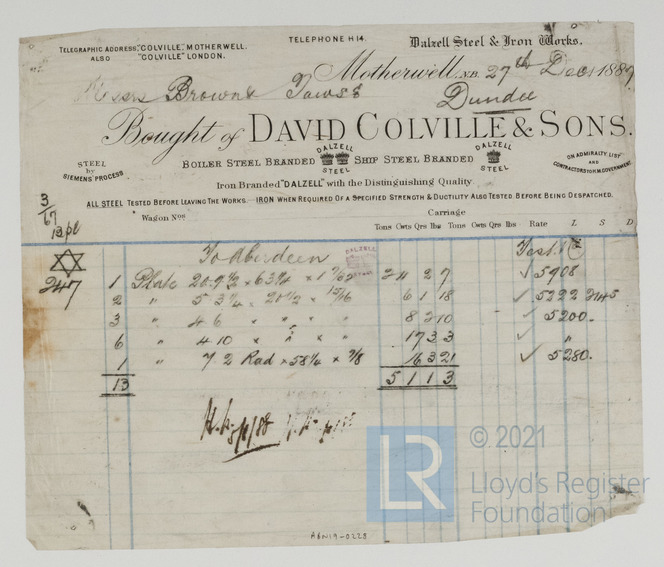 TELEGRAPHIC ADDRESS, "COLVILLE", MOTHERWELL.
ALSO "COLVILLE" LONDON.
TELEPHONE No 14.
Dalzell Steel & Iron Works.
Motherwell, N.B. 27th Dec 188
Messrs Brown & Dundee
Bought of DAVID COLVILLE & SONS.
STEEL by SIEMENS' PROCESS
BOILER STEEL BRANDED DALZELL STEEL SHIP STEEL BRANDED DALZELL STEEL
ON ADMIRALTY LIST AND CONTRACTORS FOR H.M. GOVERNMENT.
Iron Branded "DALZELL" with the Distinguishing Quality
ALL STEEL TESTED BEFORE LEAVING THE WORKS. IRON WHEN REQUIRED OF A SPECIFIED STRENGTH & DUCTILITY ALSO TESTED BEFORE BEING DESPATCHED.
3/67
12 pl
Wagon Nos Carriage
Tons Cwts Qrs lbs Tons Cwts Qrs lbs Rate L S D
To Aberdeen Test No
247
1 Plate 5908
2 " 5 3 3/4 " 20 1/2 × 15/16 6 1 18 5222
3 " 4 6 × " × " 8 2 10 5200
6 " 4 10 × " × " 17 3 3 "
1 " 7 2 Rad × 58 1/4 × 7/8 16 3 21 5280
13 5 1 1 3
LR
© 2021
Lloyd's Register
Foundation
A6N19-0228